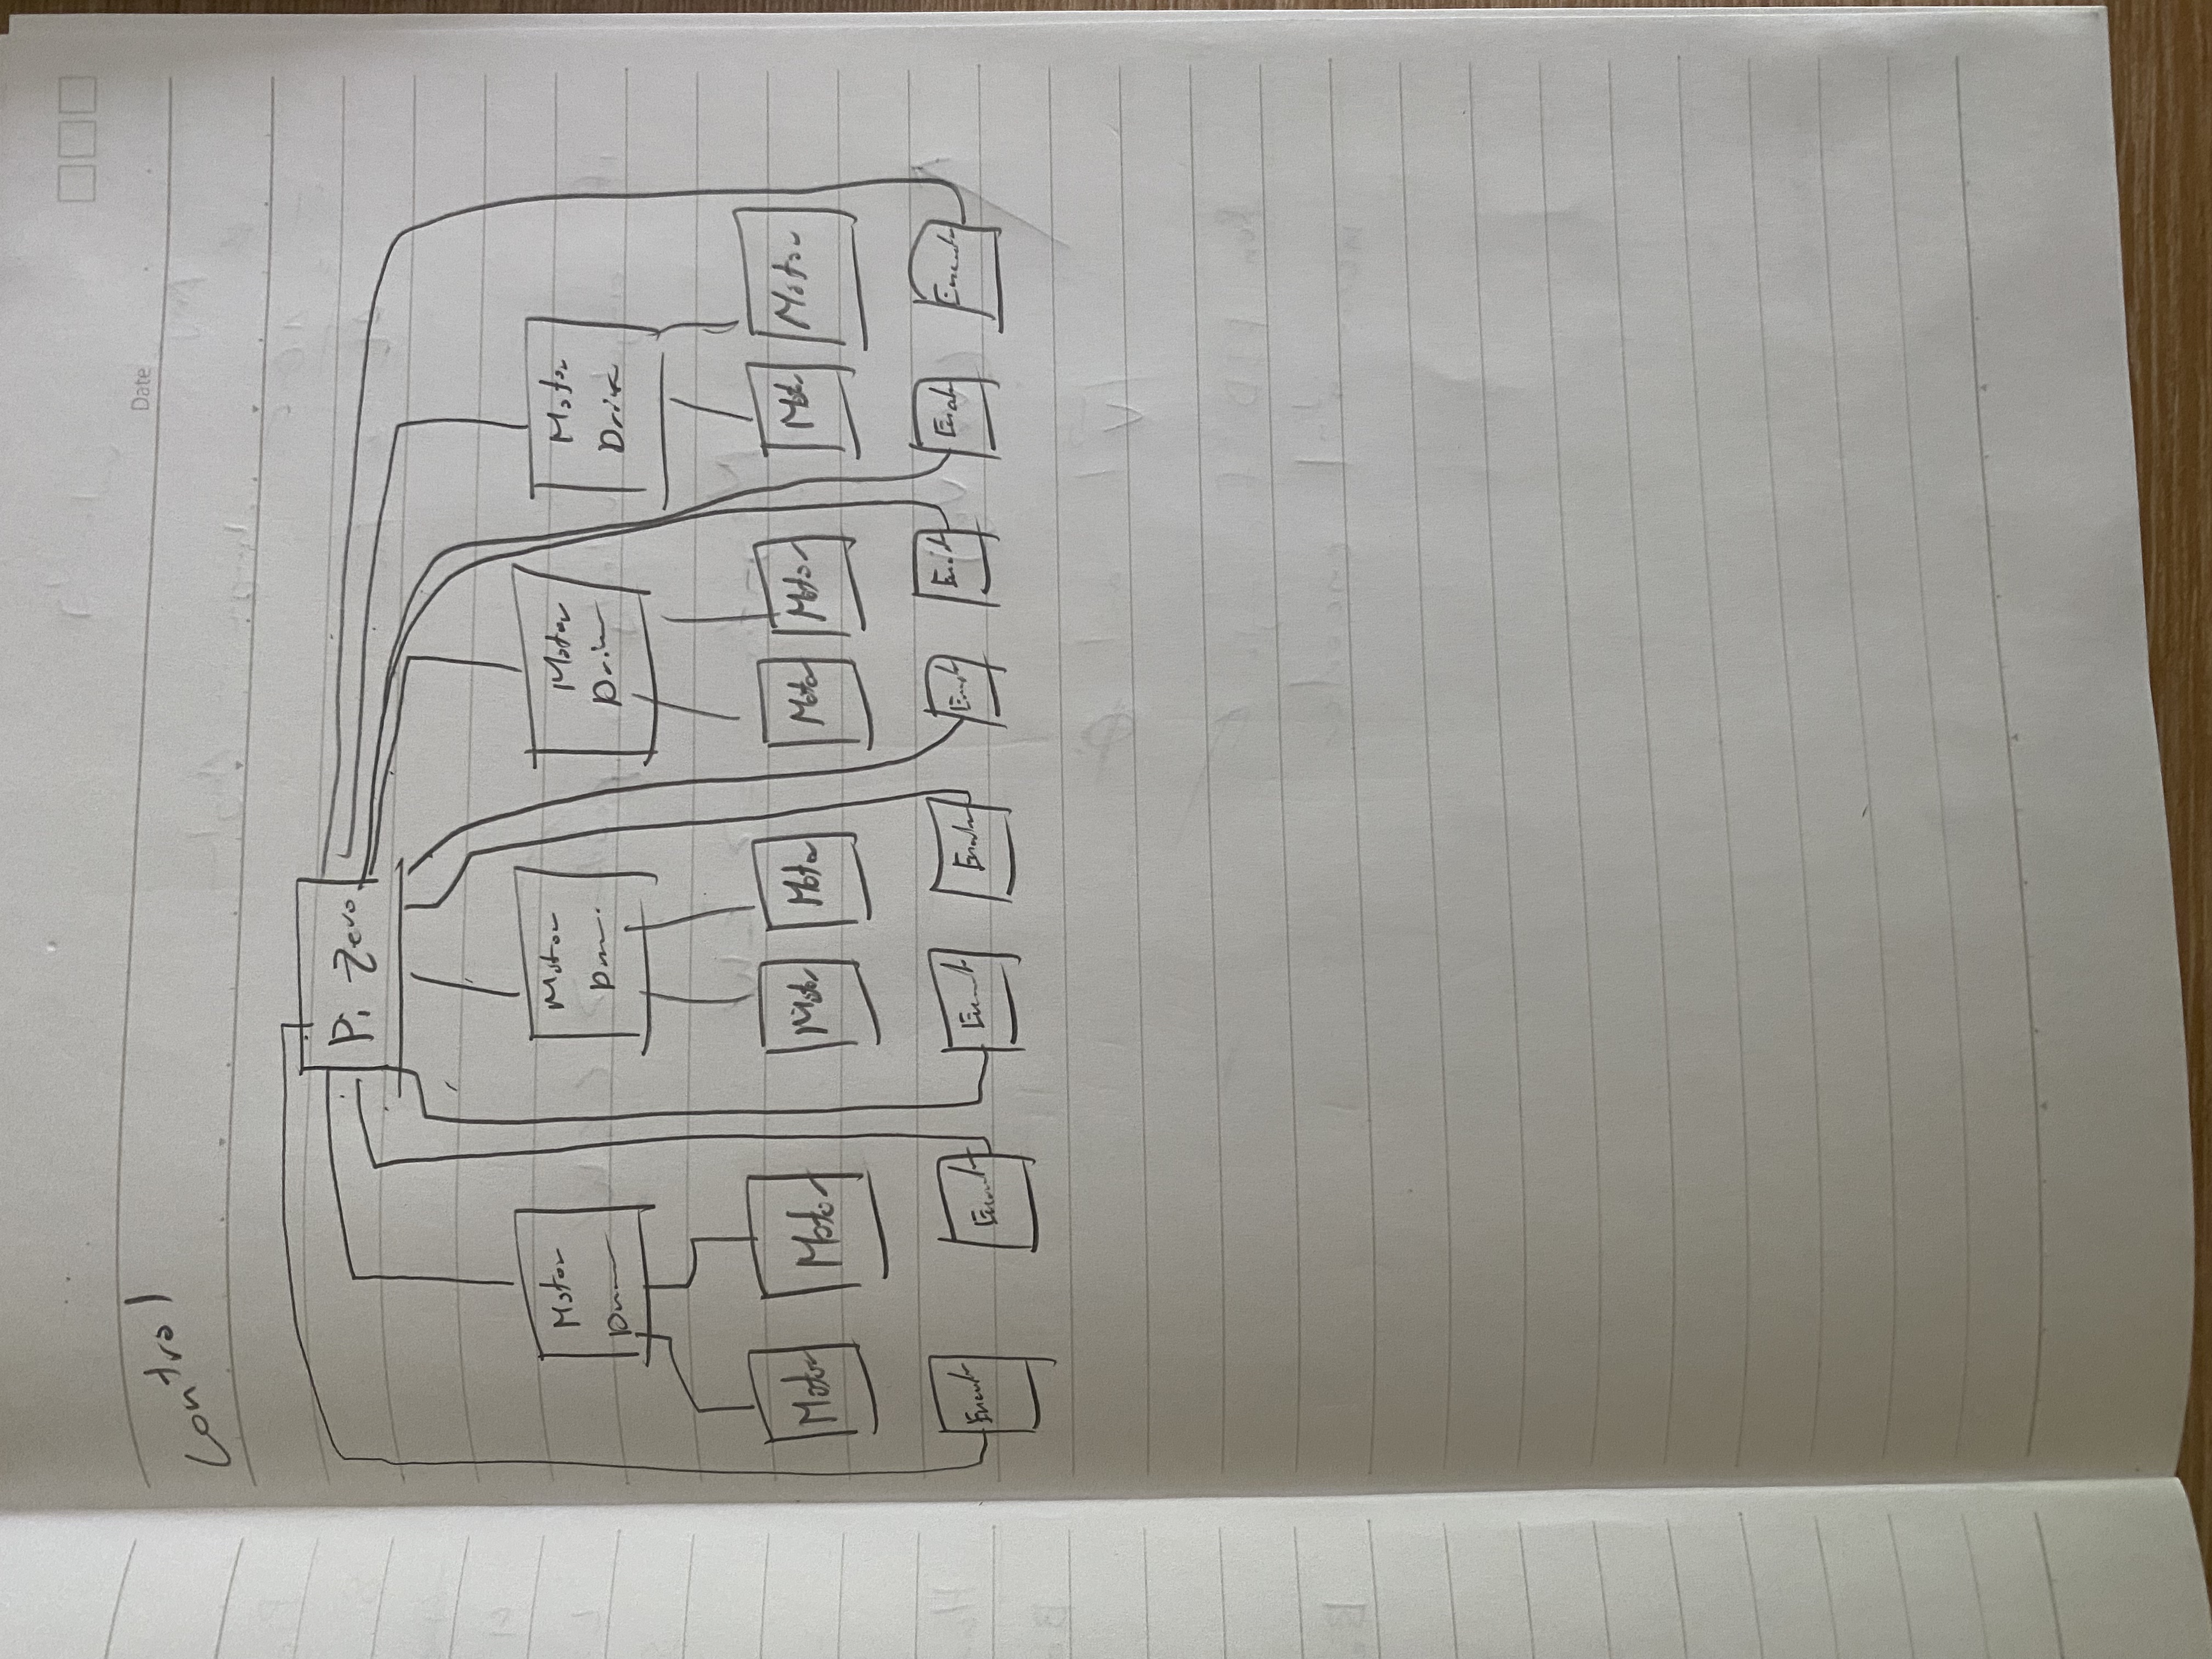 Date
Control
Pi Zero
Motor
Motor
Motor
Driver
Motor
Driver
Motor
Motor
Motor
Motor
Motor
Motor
Motor
Motor
Encoder
Encoder
Encoder
Encoder
Encoder
Encoder
Encoder
Encoder